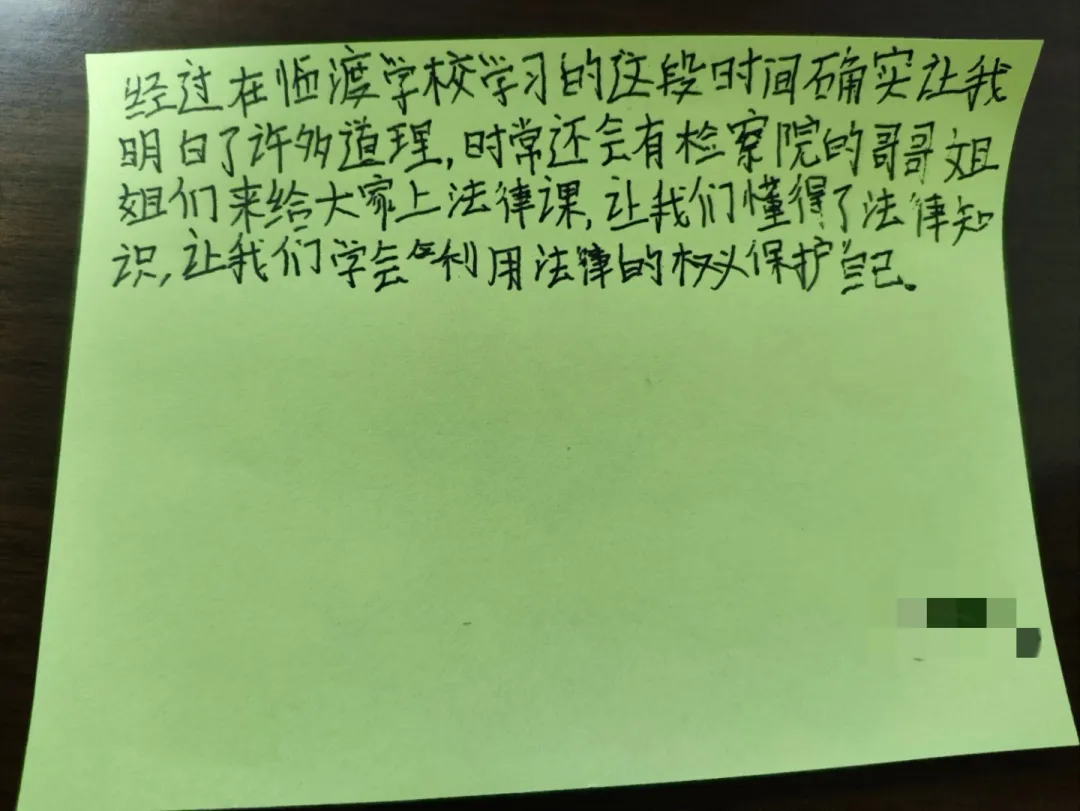 经过在恒渡学校学习的这段时间确实让我
明白了许多道理,时常还会有检察院的哥哥姐
姐们来给大家上法律课,让我们懂得了法律知
识,让我们学会利用法律的权义保护自己。